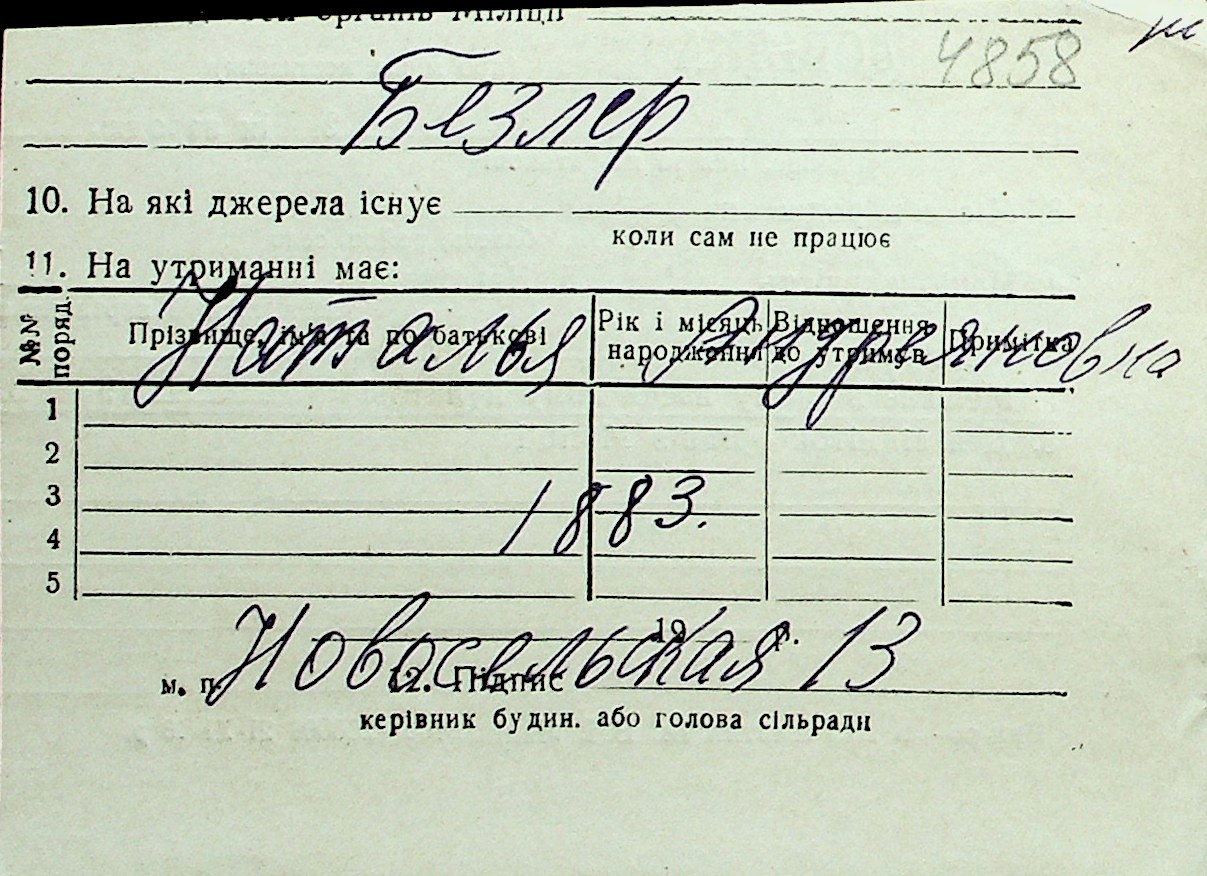 органів Міліції
4858
Безлер
10. На які джерела існує
коли сам не працює
11. На утриманні має:
Наталья Андреяновна
№№ поряд. Прізвище, ім'я та по батькові Рік і місяць народження Відношення до утримув. Примітка
1
2
3
1883.
4
5
Новосельская 13
19 р.
м. п. 12. Підпис
керівник будин. або голова сільради